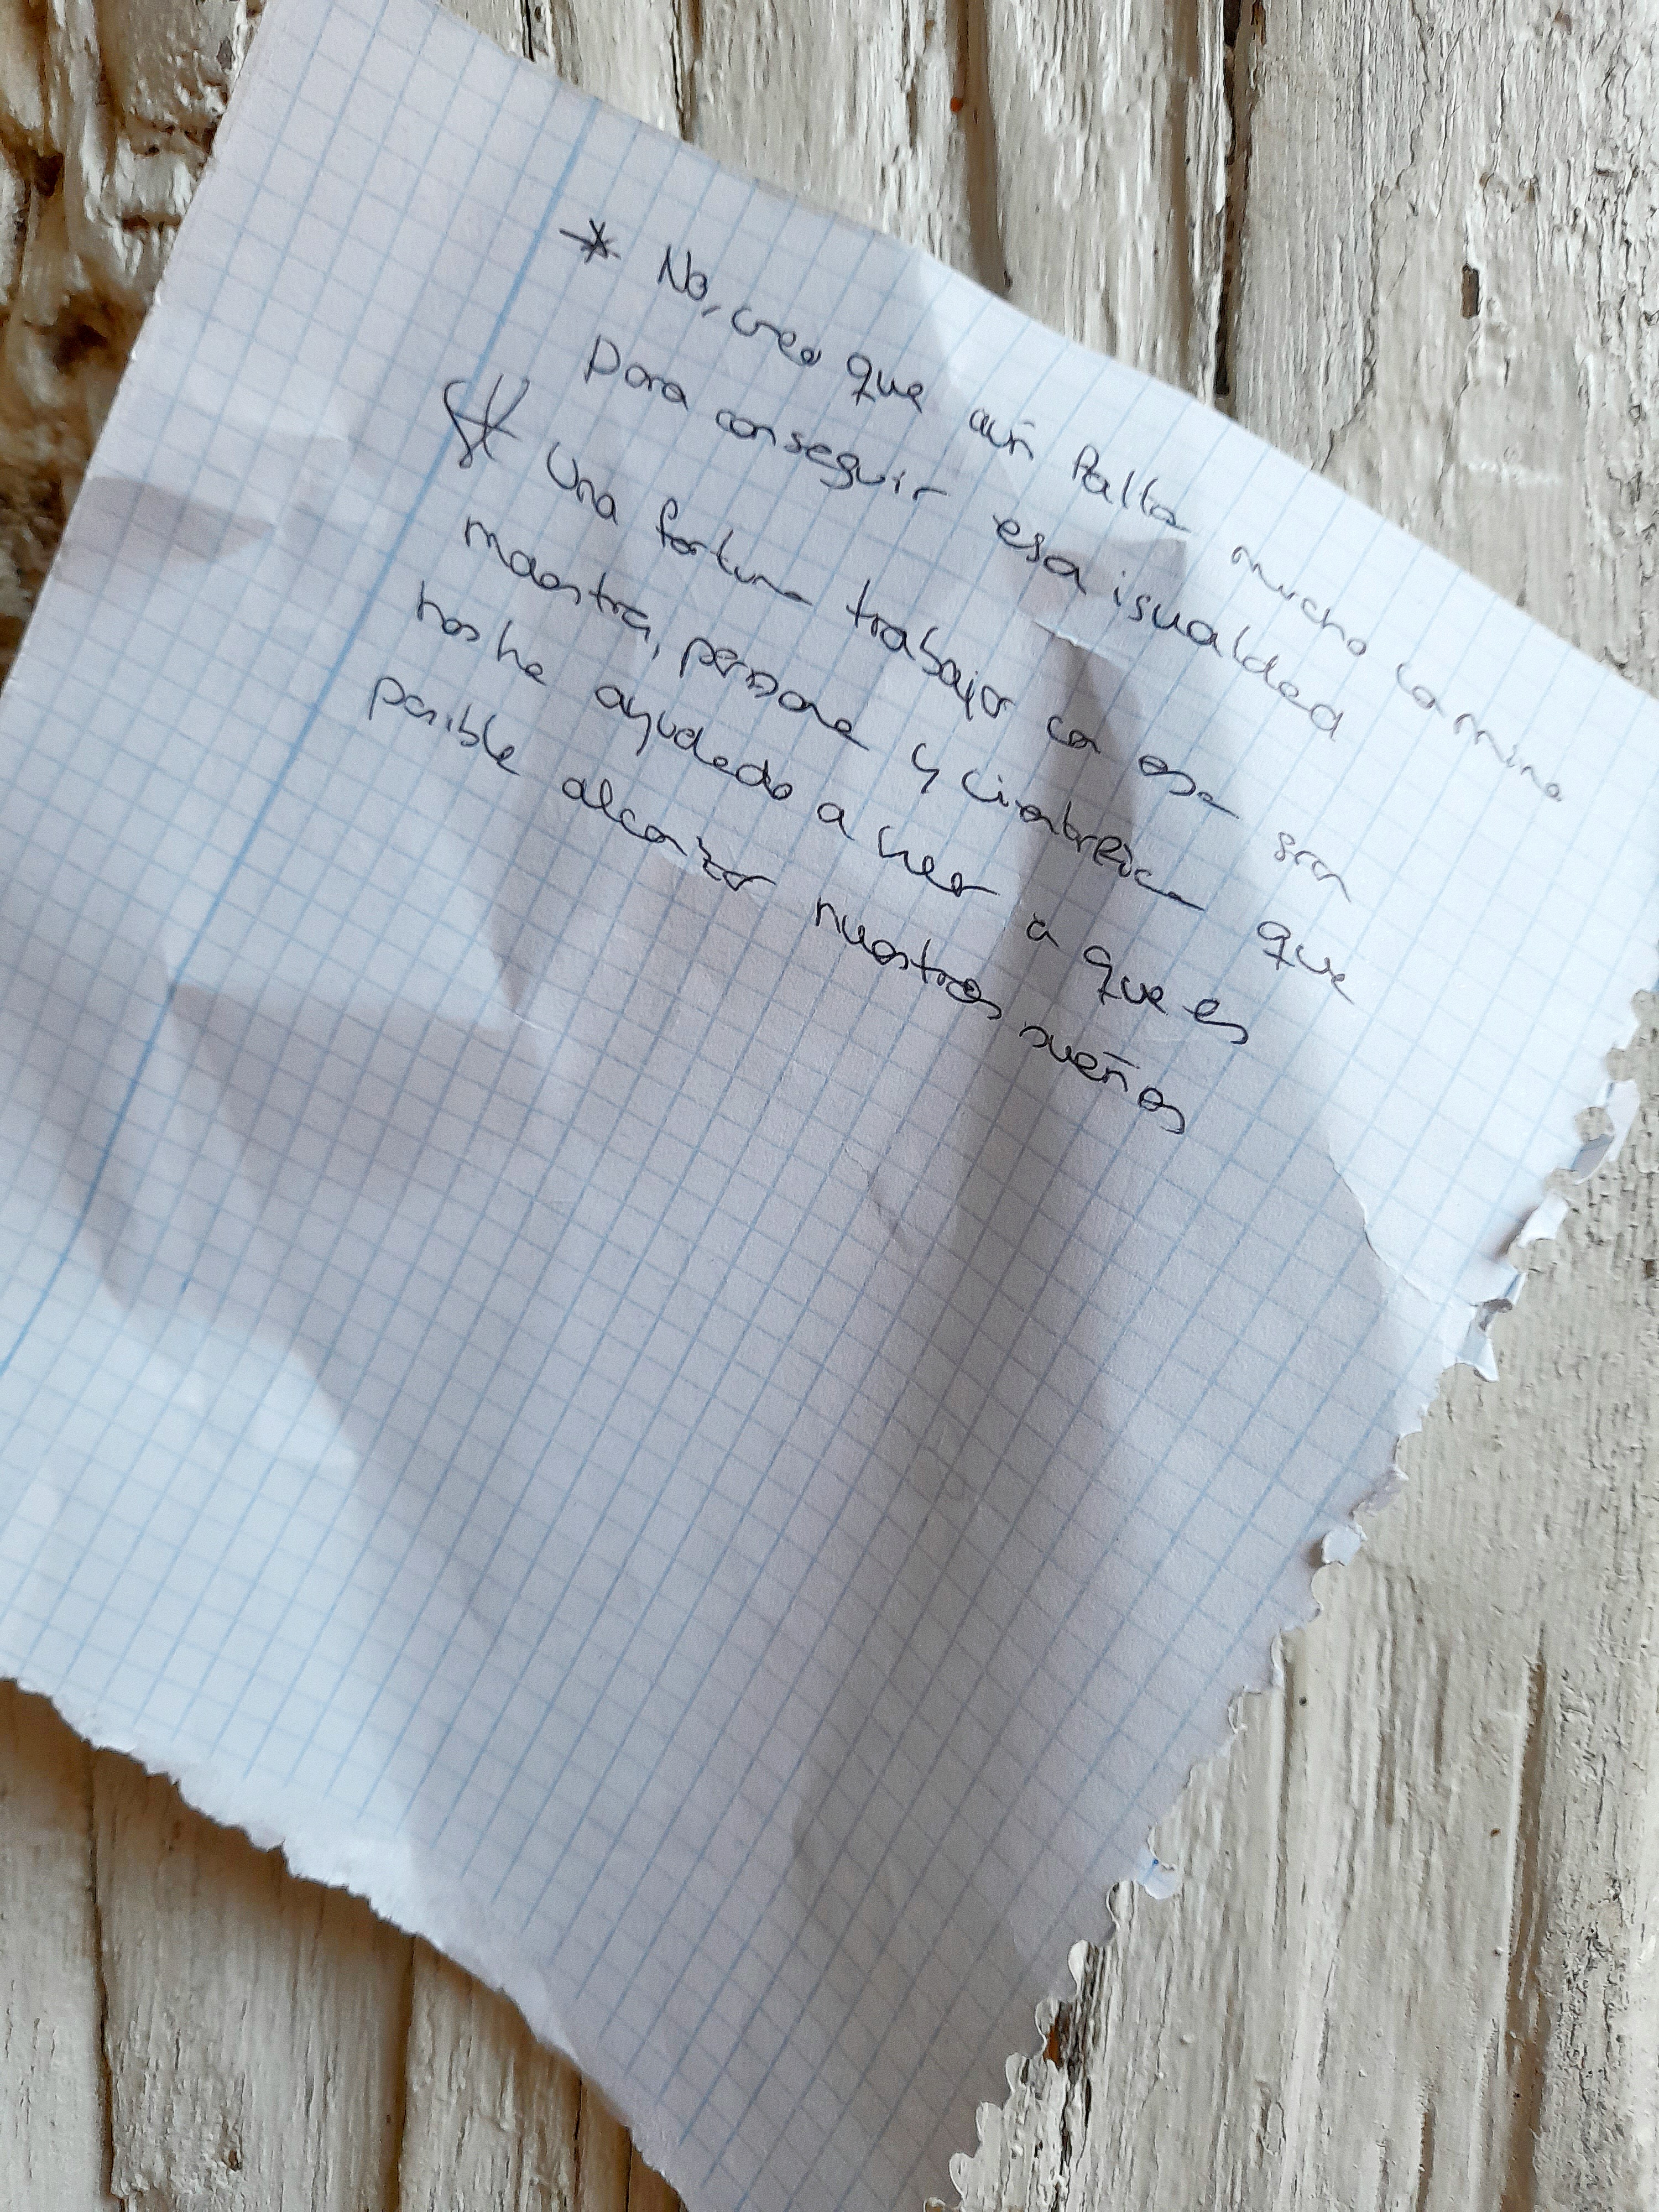 * No, creo que aún falta mucho camino
para conseguir esa igualdad
* Una fortuna trabajar con esa gran
maestra, persona y científica que
nos ha ayudado a creer a que es
posible alcanzar nuestros sueños